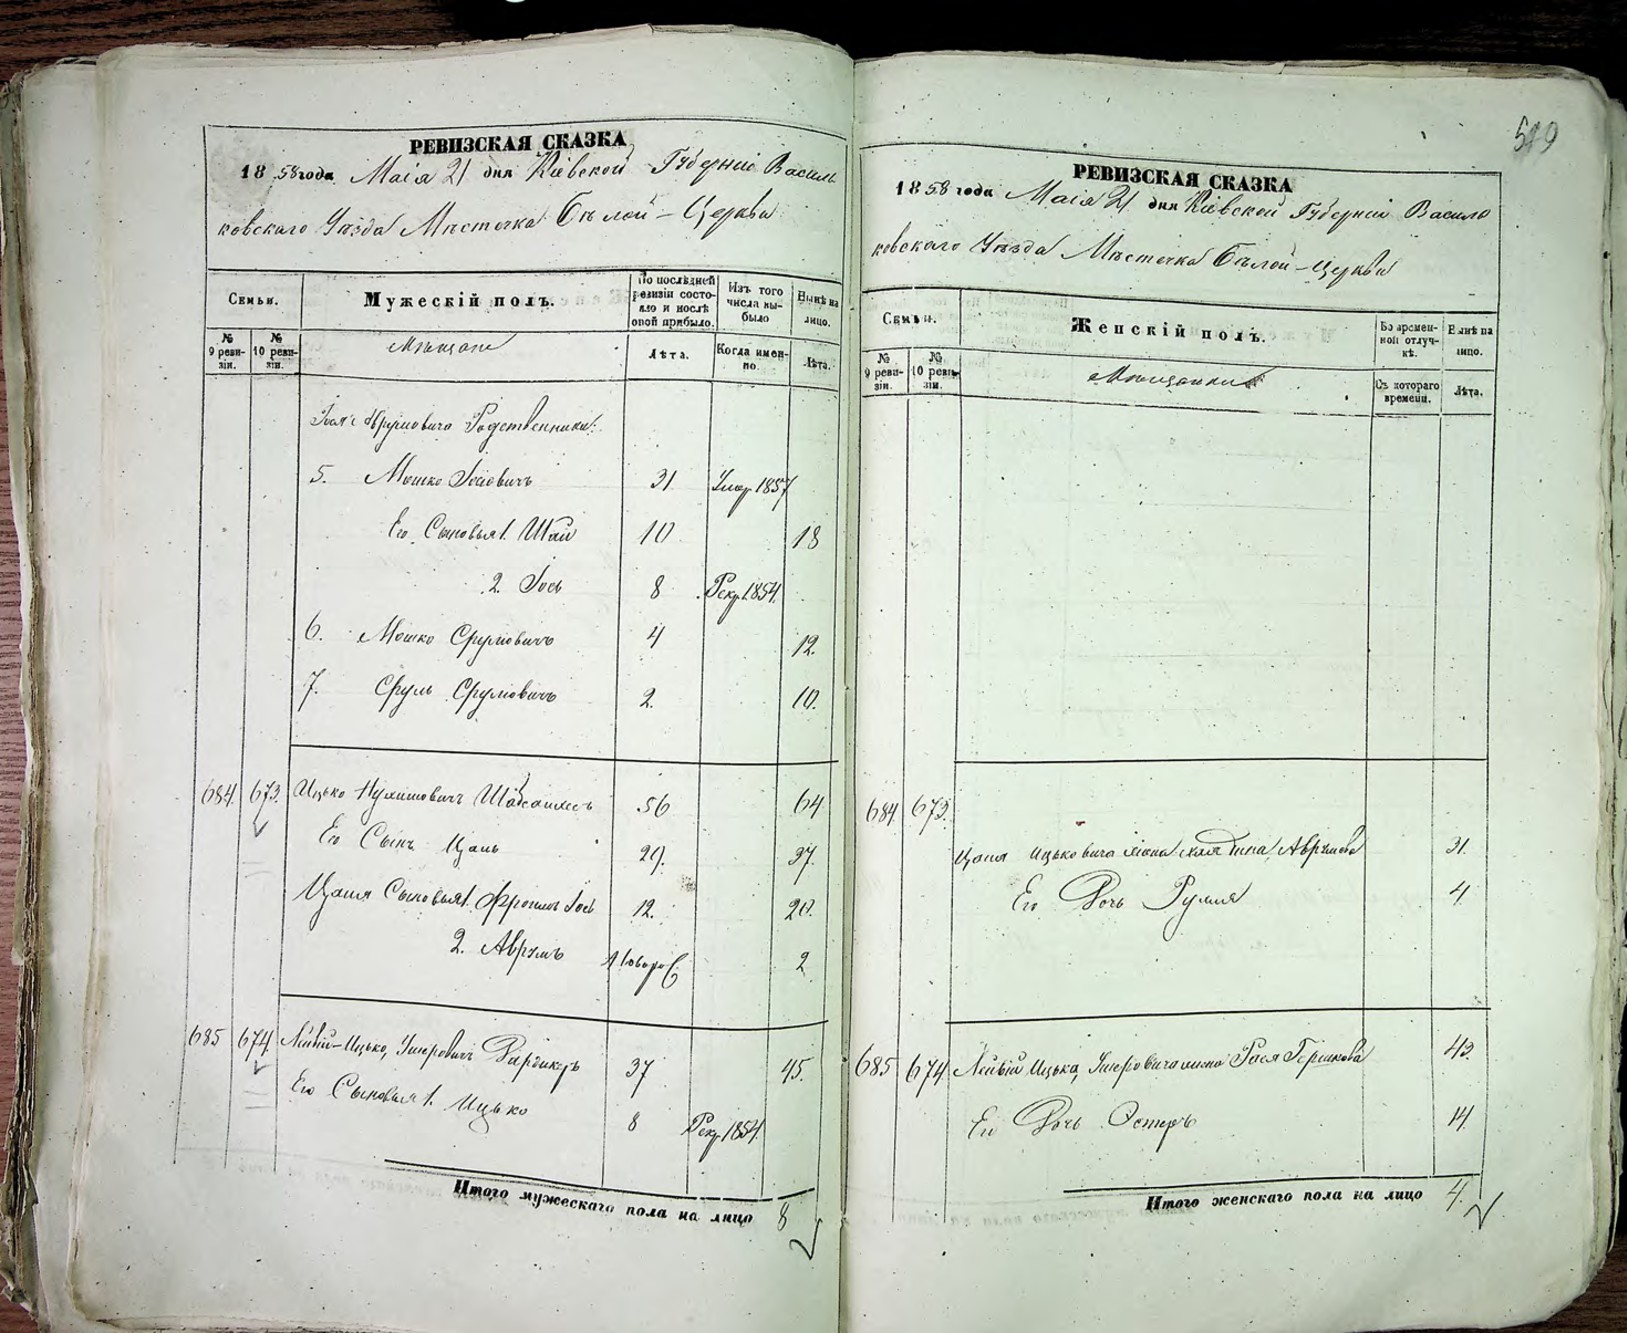 РЕВИЗСКАЯ СКАЗКА
1858 года Маія 21 дня Кіевской Губерніи Василь
ковскаго Уѣзда Мѣстечка Бѣлой-Церкви
Семьи.
Мужескій полъ.
По послѣдней ревизіи состояло и послѣ оной прибыло.
Изъ того числа выбыло
Нынѣ на лицо.
№ 9 ревизіи.
№ 10 ревизіи.
Мѣщане
Лѣта.
Когда именно.
Лѣта.
Родственники:
5. Мошко Іосіовичъ 31 Умер. 1857
Его Сыновья 1. Шая 10 18
2. Іось 8 Рекр. 1854.
6. Мошко Сруліовичъ 4 12.
7. Сруль Сруліовичъ 2. 10.
684. 673. Ицько 56 64
Его Сынъ Цаль 29. 37.
Цаля Сыновья 1. Фроимъ Іось 12. 20.
2. Аврумъ Новорож. 2
685 674. Лейбій-Ицько, 37 45.
Его Сыновья 1. Ицько 8 Рекр. 1854.
Итого мужескаго пола на лицо 8
519
РЕВИЗСКАЯ СКАЗКА
1858 года Маія 21 дня Кіевской Губерніи Василь
ковскаго Уѣзда Мѣстечка Бѣлой-Церкви
Семьи.
Женскій полъ.
Во временной отлучкѣ.
Нынѣ на лицо.
№ 9 ревизіи.
№ 10 ревизіи.
Мѣщанки
Съ котораго времени.
Лѣта.
684 673.
Цаля Ицьковича жена Аврумова 31.
Его Дочь 4
685 674 Лейбія Ицька, жена Рася Гершкова 43.
Его Дочь Эстеръ 14
Итого женскаго пола на лицо 4.